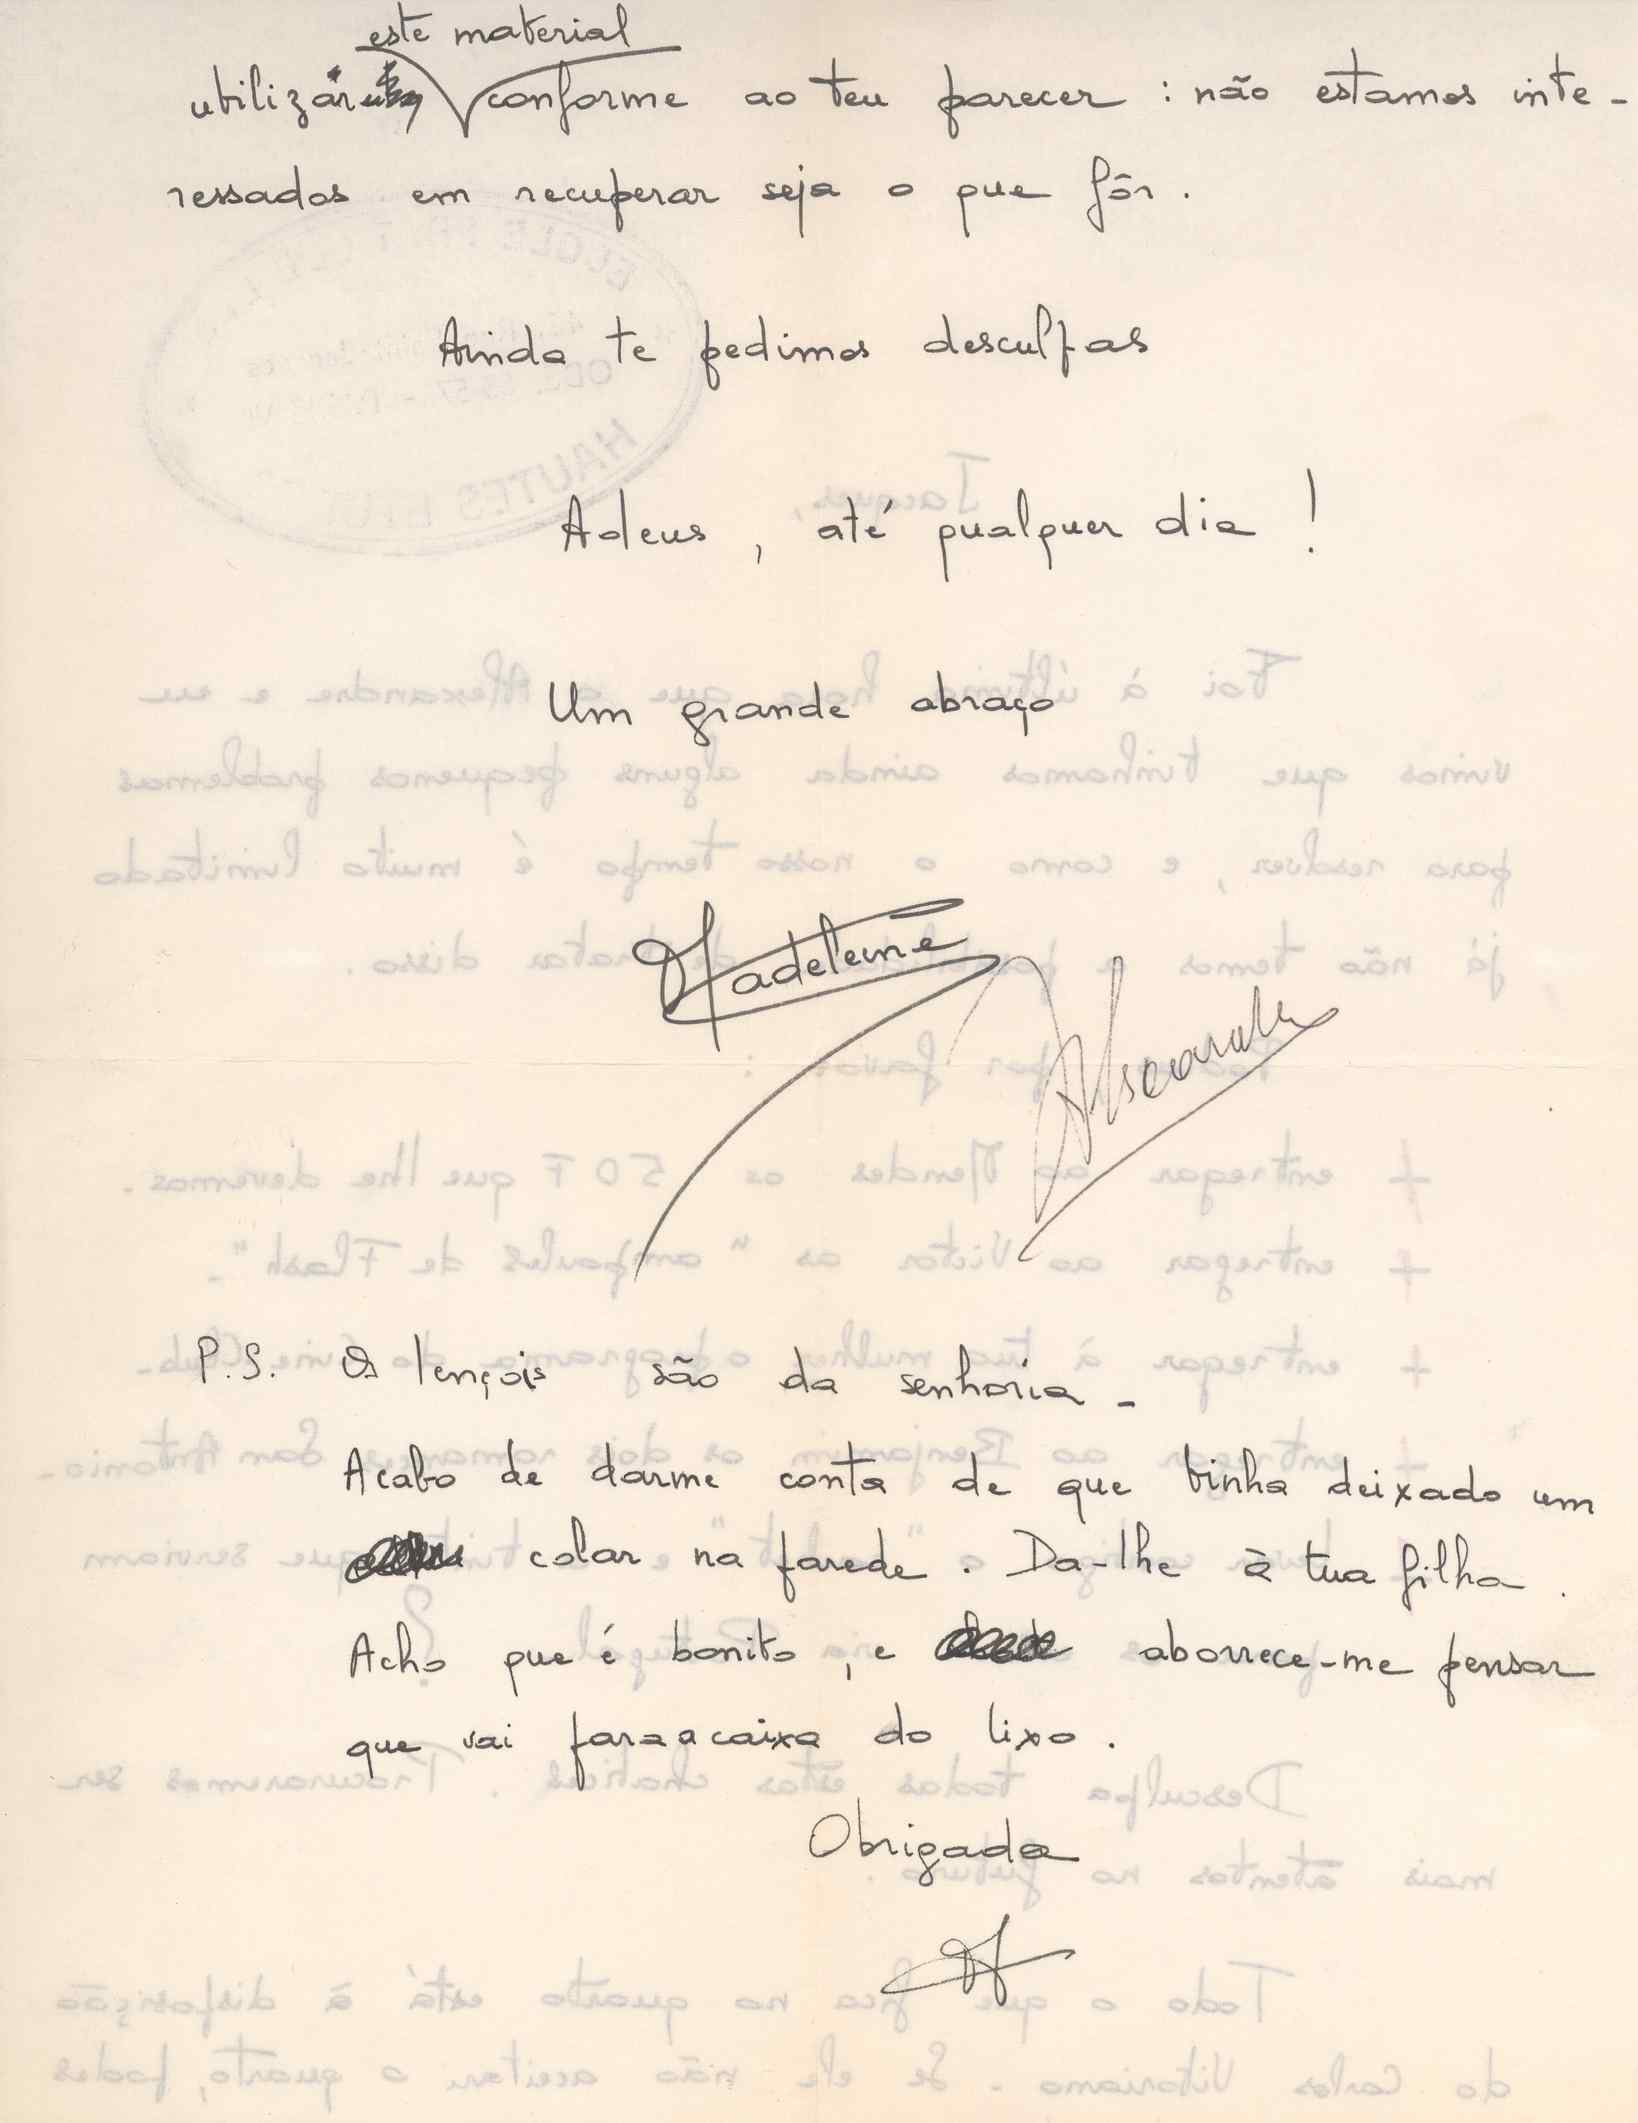 este material
utilizar conforme ao teu parecer : não estamos inte-
ressados em recuperar seja o que fôr.
Ainda te pedimos desculpas
Adeus, até qualquer dia !
Um grande abraço
Madeleine
P.S. Os lençois são da senhoria -
Acabo de darme conta de que tinha deixado um
colar na parede. Da-lhe à tua filha.
Acho que é bonito, e aborrece-me pensar
que vai para a caixa do lixo.
Obrigada